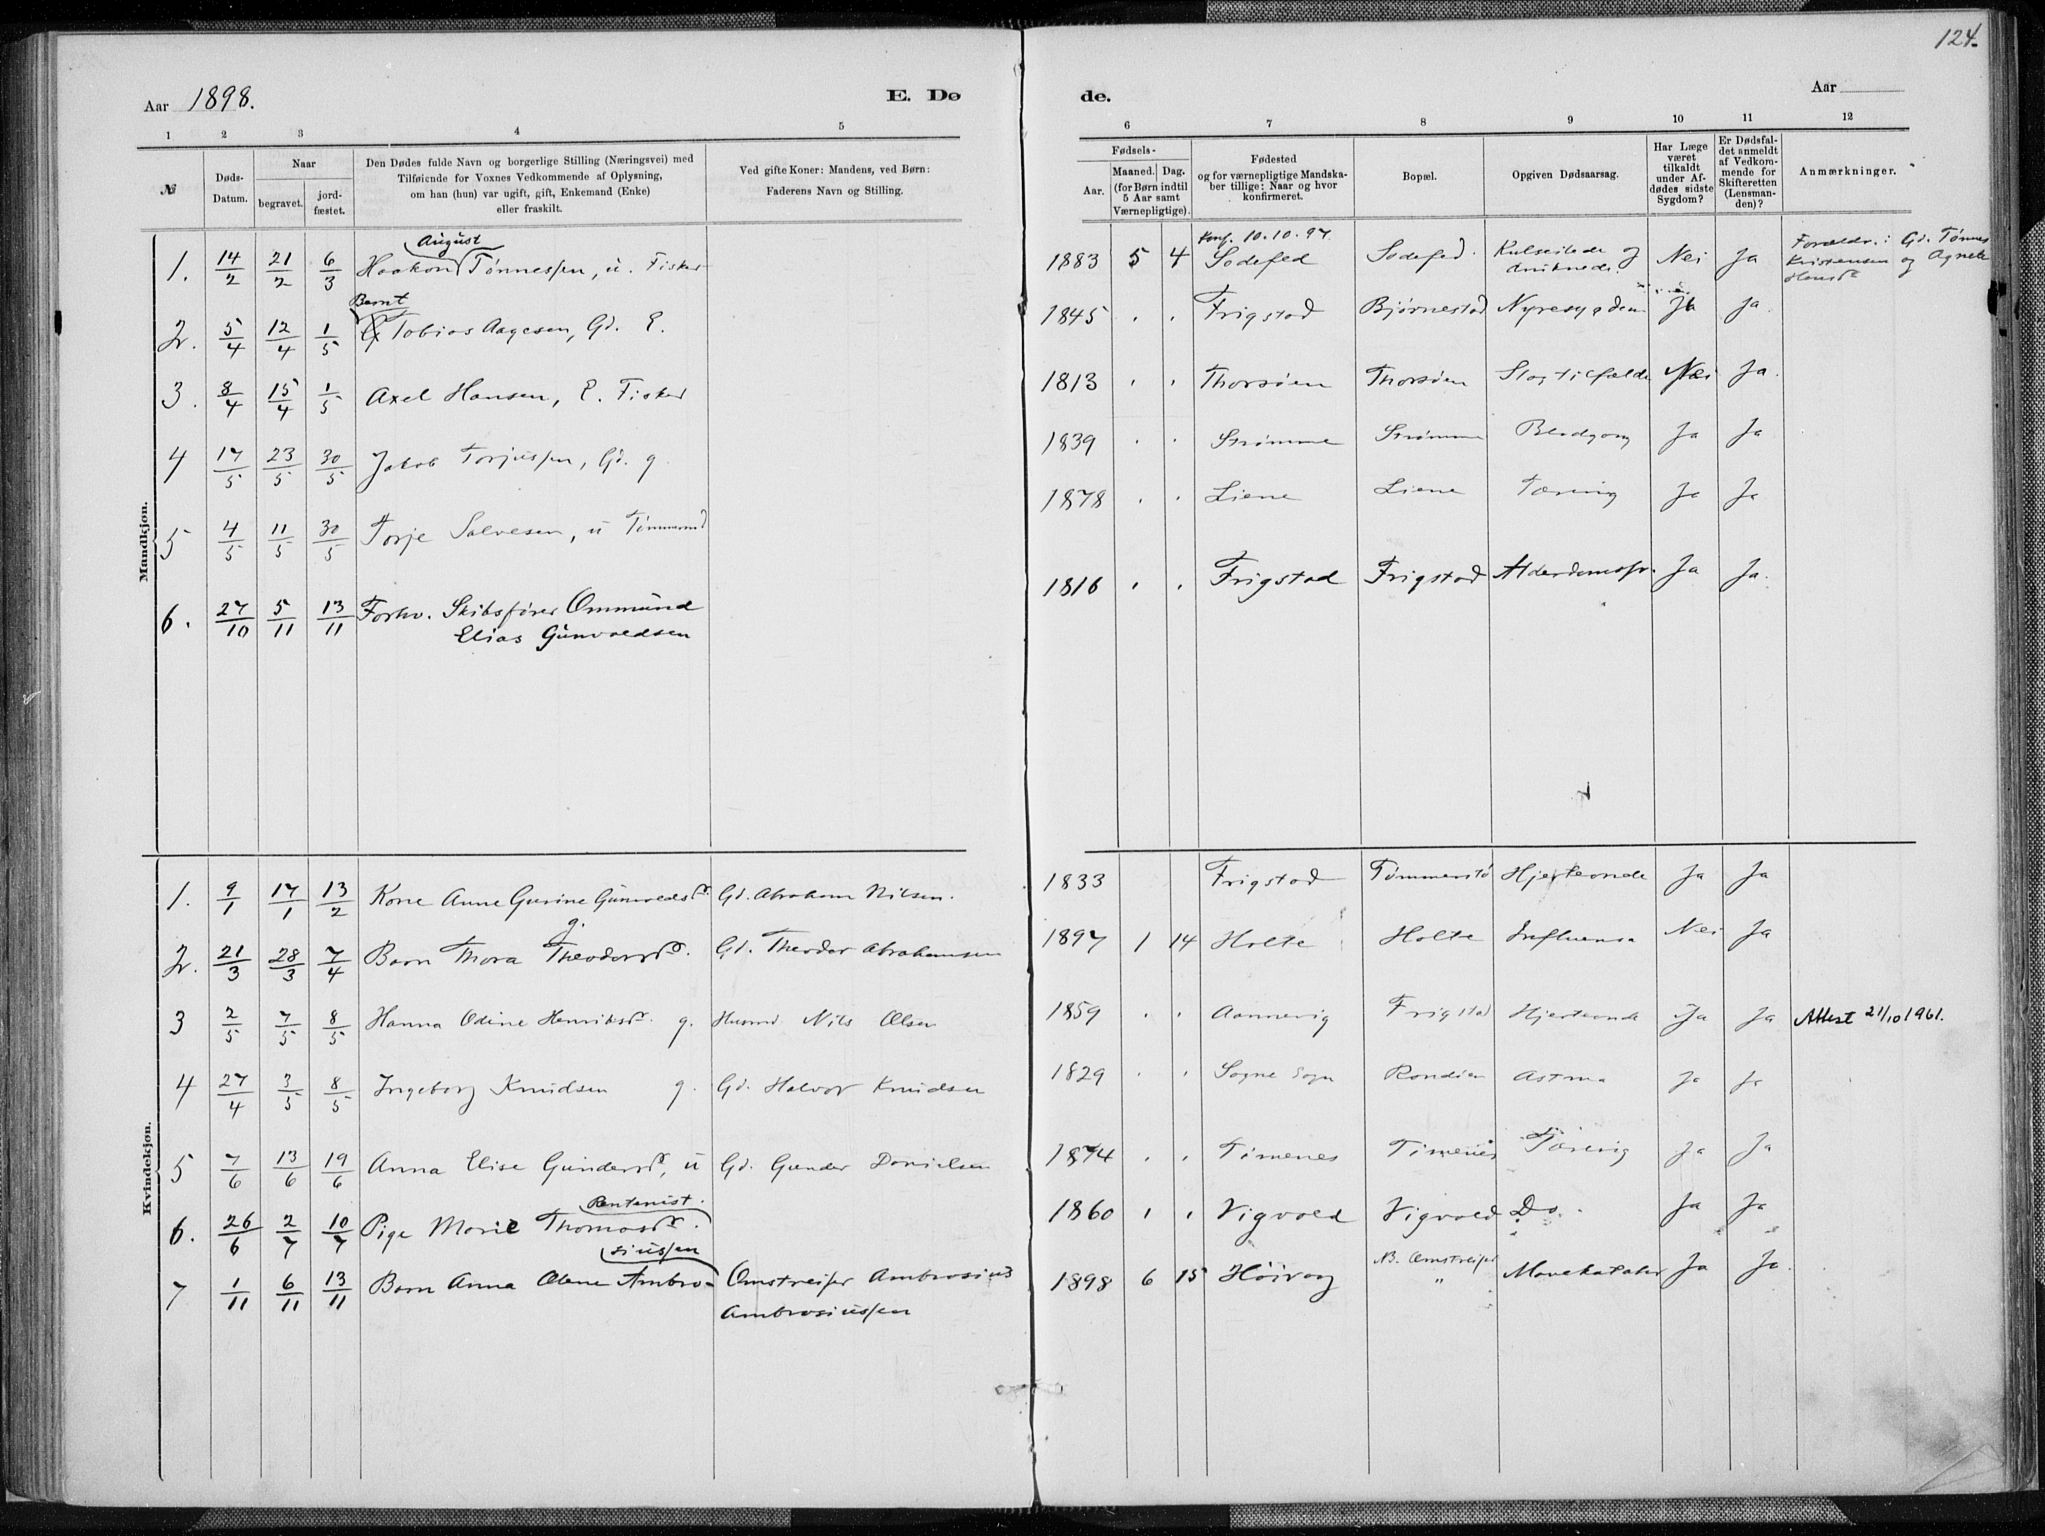 124.
Aar 1898.
E. Dø
de.
Aar
1 2 3 4 5
6 7 8 9 10 11 12
№
Døds-
Datum.
Naar
begravet.
jord-
fæstet.
Den Dødes fulde Navn og borgerlige Stilling (Næringsvei) med
Tilføiende for Voxnes Vedkommende af Oplysning,
om han (hun) var ugift, gift, Enkemand (Enke)
eller fraskilt.
Ved gifte Koner: Mandens, ved Børn:
Faderens Navn og Stilling.
Fødsels-
Aar.
Maaned. Dag.
(for Børn indtil
5 Aar samt
Værnepligtige).
Fødested
og for værnepligtige Mandska-
ber tillige: Naar og hvor
konfirmeret.
Bopæl.
Opgiven Dødsaarsag.
Har Læge
været
tilkaldt
under Af-
dødes sidste
Sygdom?
Er Dødsfal-
det anmeldt
af Vedkom-
mende for
Skifteretten
(Lensman-
den)?
Anmærkninger.
Mandkjøn.
August
1. 14/2 21/2 6/3 Haakon Tønnessen, u. Fisker
Bernt
2. 5/4 12/4 1/5 Tobias Aagesen, Gd. E.
3. 8/4 15/4 1/5 Axel Hansen, E. Fisker
4 17/5 23/5 30/5 Jakob Torjussen, Gd. g.
5 4/5 11/5 30/5 Torje Salvesen, u Tømmermd
6. 27/10 5/11 13/11 Forhv. Skibsfører Ommund
Elias Gunvaldsen
Konf. 10.10.97
1883 5 4 Sodefed Sodefed. Kulseilede og
druknede. Nei Ja
Forældr.: Gd. Tønnes
Kristensen og Agnete
Hansdr
1845 " " Frigstad Bjørnestad Nyresygdom Ja Ja.
1813 " " Thorsøen Thorsøen Slagtilfælde Nei Ja.
1839 " " Strømme Strømme Blodgang Ja Ja
1878 " " Liene Liene Tæring Ja Ja
1816 " " Frigstad Frigstad Alderdomssv. Ja Ja.
Kvindekjøn.
1. 9/1 17/1 13/2 Kone Anne Gurine Gunvaldsdr. Gd. Abraham Nilsen.
g.
2. 21/3 28/3 7/4 Barn Thora Theodorsdr. Gd. Theodor Abrahamsen
3 2/5 7/5 8/5 Hanna Odine Henriksdr. g. Husmd Nils Olsen
4 27/4 3/5 8/5 Ingeborg Knudsen g. Gd. Halvor Knudsen
5 7/6 13/6 19/6 Anna Elise Gundersdr, u Gd. Gunder Danielsen
Rentenist.
6. 26/6 2/7 10/7 Pige Marie Thomasdr.
siussen
7 1/11 6/11 13/11 Barn Anna Olene Ambro- Omstreifer Ambrosius
Ambrosiussen
1833 Frigstad Tømmerstø Hjerteonde Ja Ja
1897 1 14 Holte Holte Influensa Nei Ja
1859 " " Aannevig Frigstad Hjerteonde Ja Ja Attest 21/10 1961.
1829 " " Søgne Sogn Randøen Astma Ja Ja
1874 " " Timenes Timenes Tæring Ja Ja
1860 " " Vigvold Vigvold Do. Ja Ja
1898 6 15 Høivaag NB. Omstreifer
" Mavekatahr Ja Ja.